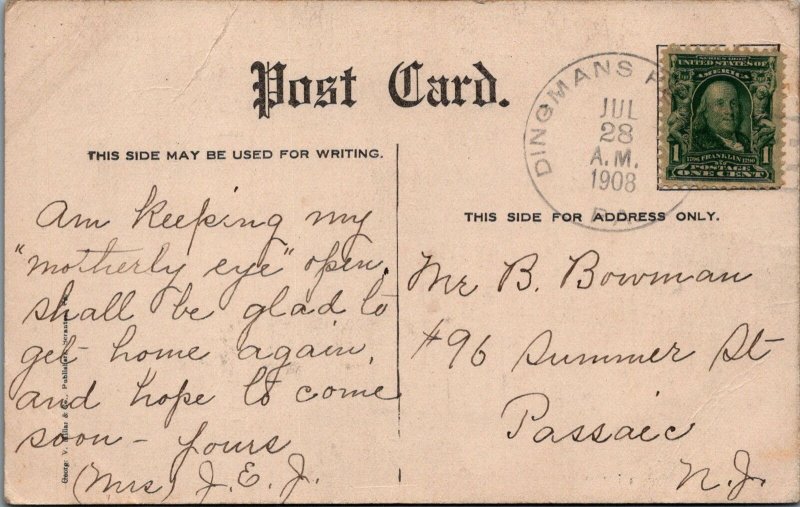 Post Card.
THIS SIDE MAY BE USED FOR WRITING.
DINGMANS
JUL
28
A.M.
1908
PA
SERIES 1902
UNITED STATES OF
AMERICA
1706 FRANKLIN 1790
1 1
POSTAGE
ONE CENT
THIS SIDE FOR ADDRESS ONLY.
Am keeping my
"motherly eye" open.
shall be glad to
get home again,
and hope to come
soon - yours
(Mrs) J. E. J.
Mr B. Bowman
#96 Summer St
Passaic
N.J.
George V. Millar & Co., Publishers, Scranton, Pa.